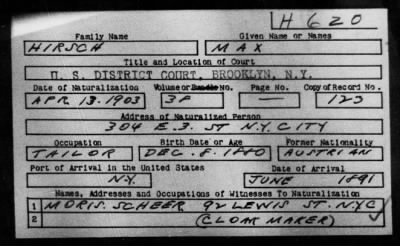 H 620
Family Name Given Name or Names
HIRSCH MAX
Title and Location of Court
U. S. DISTRICT COURT, BROOKLYN, N.Y.
Date of Naturalization Volume or Bundle No. Page No. Copy of Record No.
APR. 13. 1903 38 — 123
Address of Naturalized Person
304 E. 3. ST N.Y. CITY
Occupation Birth Date or Age Former Nationality
TAILOR DEC. 8. 1880 AUSTRIAN
Port of Arrival in the United States Date of Arrival
N.Y. JUNE 1891
Names, Addresses and Occupations of Witnesses To Naturalization
1 MORIS. SCHEER 92 LEWIS ST. NYC
2 (CLOAK MAKER)